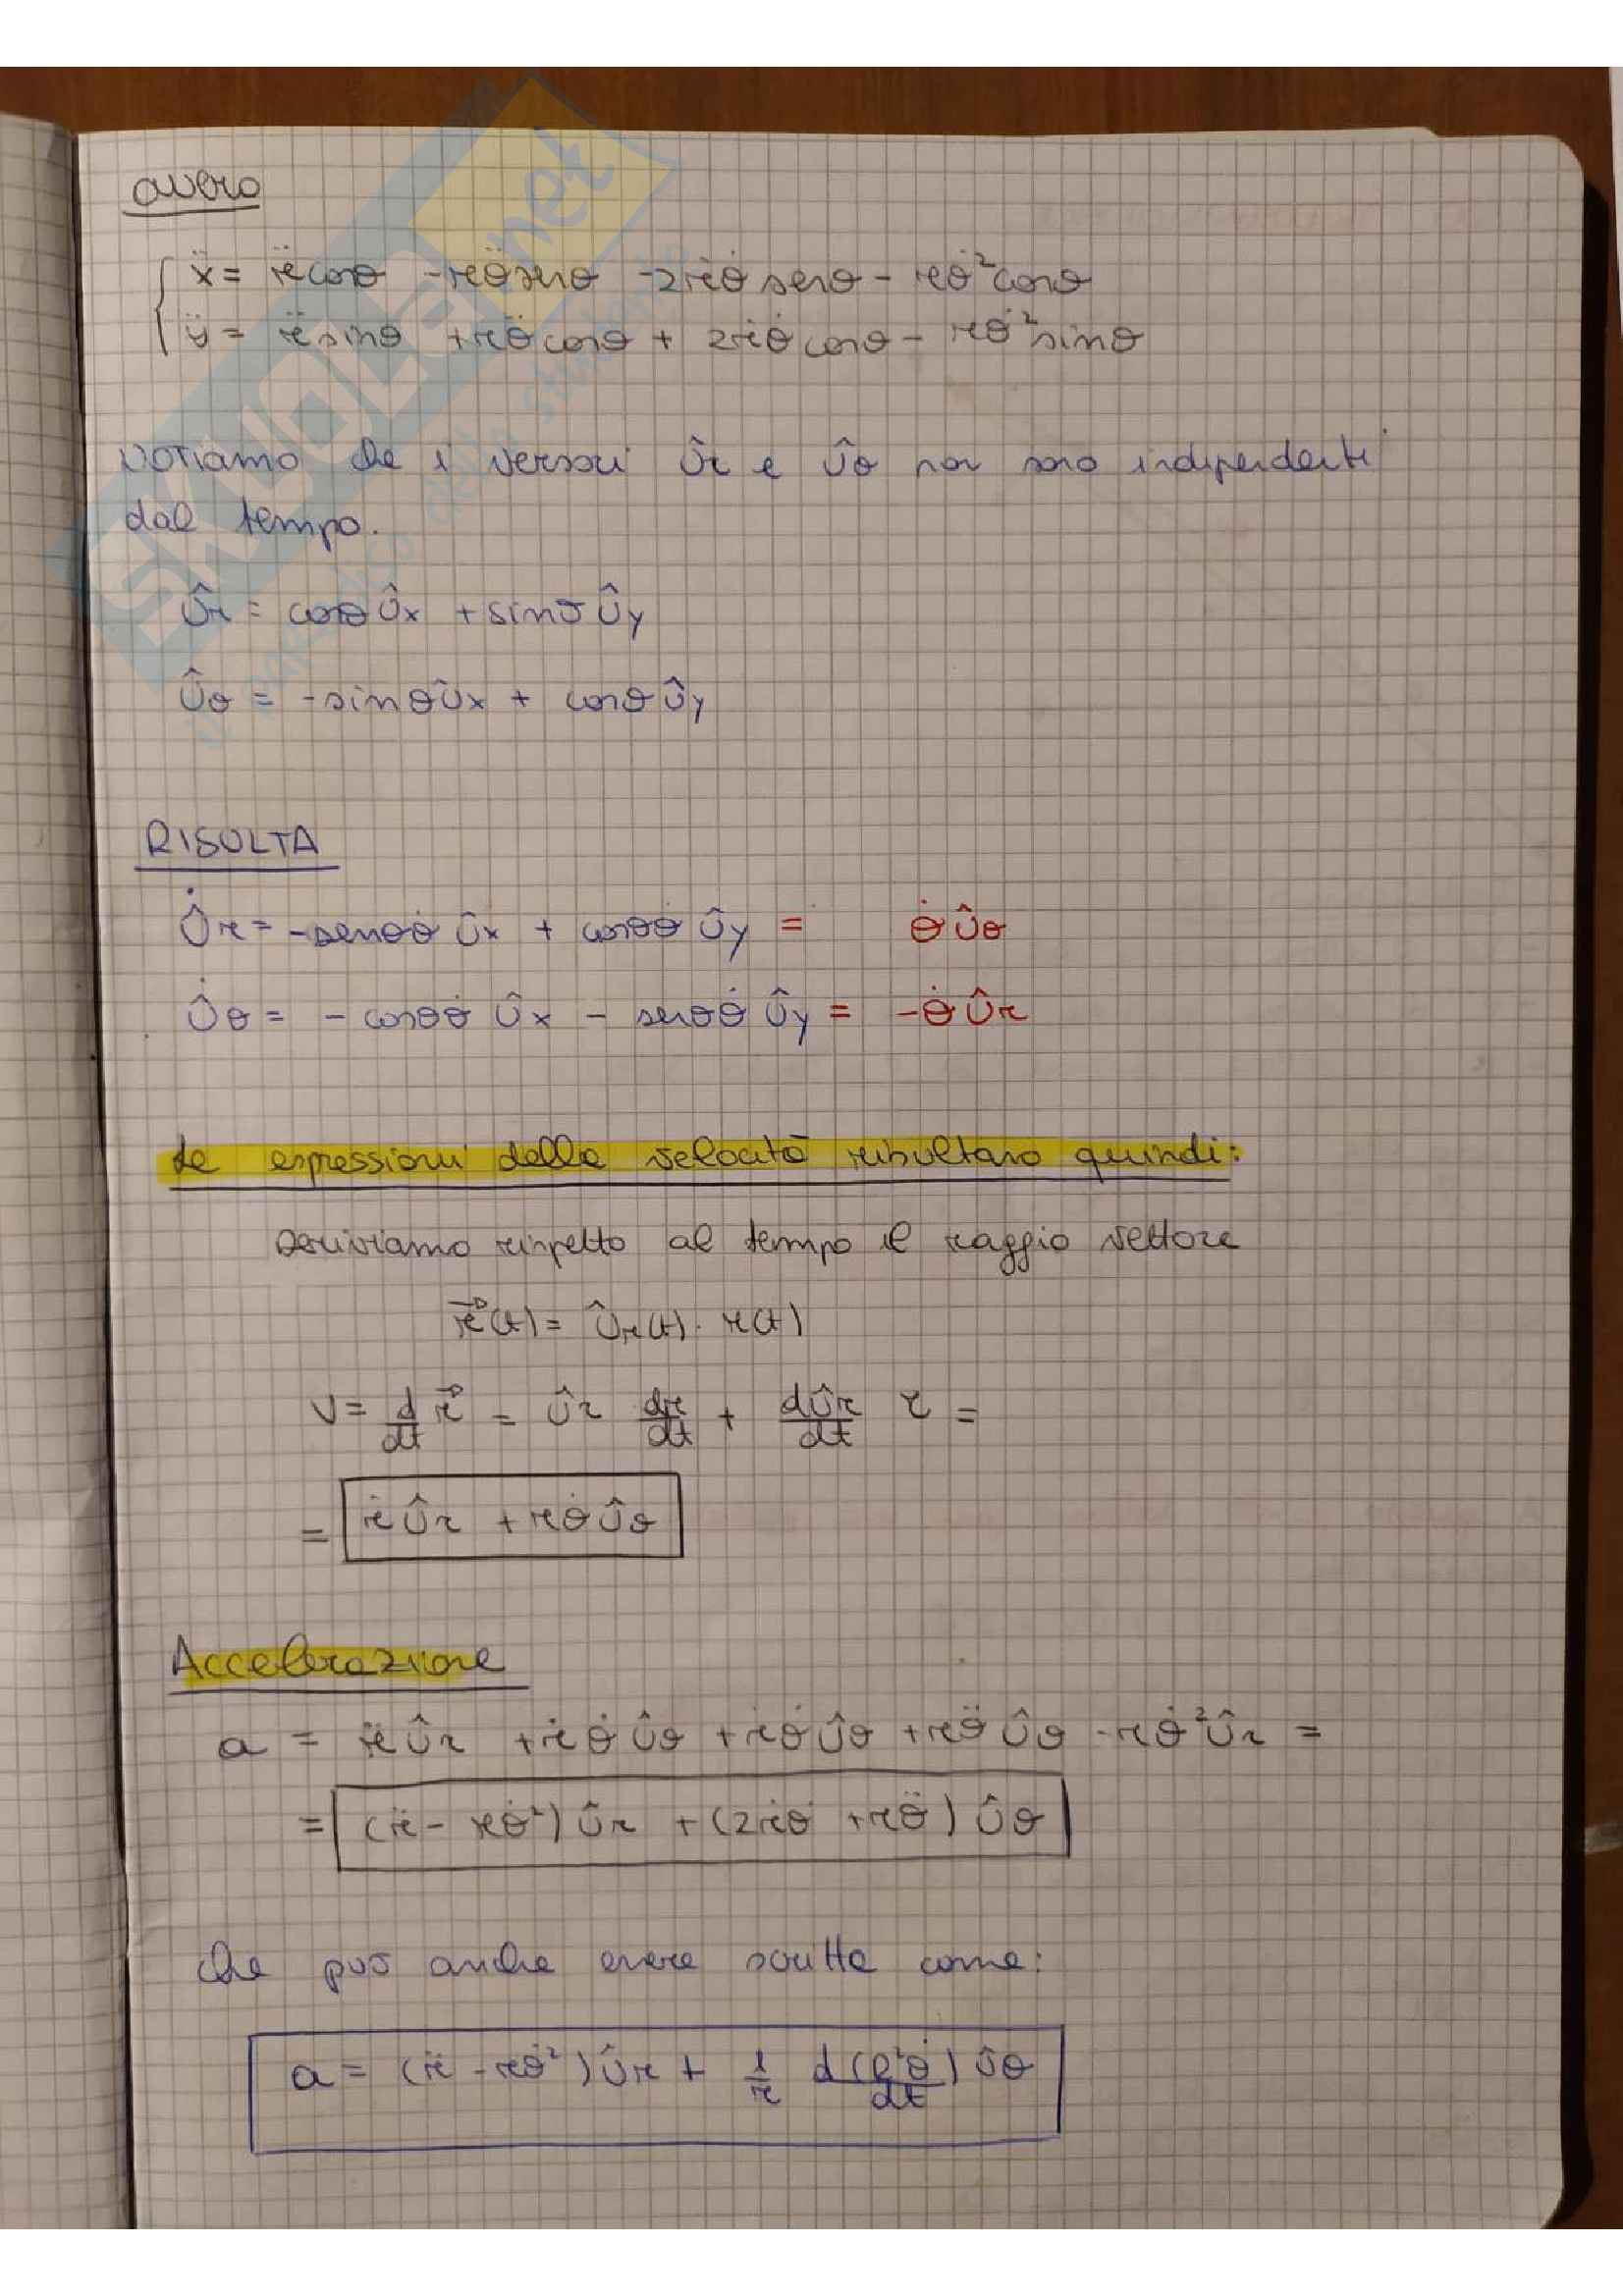 ovvero
ẍ = r̈ cosθ - rθ̈ senθ - 2ṙθ̇ senθ - rθ̇² cosθ
ÿ = r̈ sinθ + rθ̈ cosθ + 2ṙθ̇ cosθ - rθ̇² sinθ
Notiamo che i versori Ûr e Ûθ non sono indipendenti
dal tempo.
Ûr = cosθ Ûx + sinθ Ûy
Ûθ = -sinθ Ûx + cosθ Ûy
RISULTA
Û̇r = -senθ θ̇ Ûx + cosθ θ̇ Ûy = θ̇ Ûθ
Û̇θ = - cosθ θ̇ Ûx - senθ θ̇ Ûy = -θ̇ Ûr
Le espressioni della velocità risultano quindi:
Deriviamo rispetto al tempo il raggio vettore
r⃗(t) = Ûr(t) · r(t)
V = d/dt r⃗ = Ûr dr/dt + dÛr/dt r =
= ṙ Ûr + rθ̇ Ûθ
Accelerazione
a = r̈ Ûr + ṙθ̇ Ûθ + ṙθ̇ Ûθ + rθ̈ Ûθ - rθ̇² Ûr =
= (r̈ - rθ̇²) Ûr + (2ṙθ̇ + rθ̈) Ûθ
che può anche essere scritta come:
a = (r̈ - rθ̇²) Ûr + 1/r d(r²θ̇)/dt Ûθ